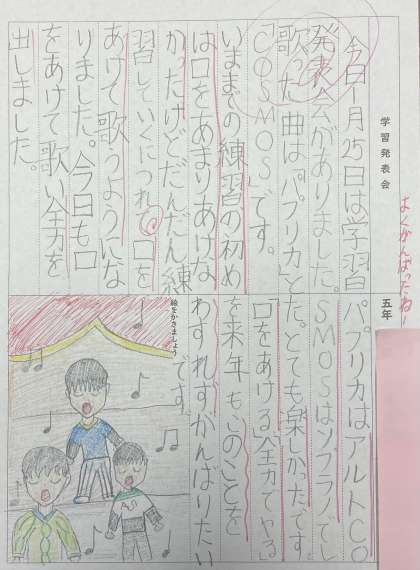 学習発表会
五年
よくがんばったね！
今日1月25日は学習
発表会がありました。
歌った曲は「パプリカ」と
「COSMOS」です。
いままでの練習の初め
は口をあまりあけな
かったけどだんだん練
習していくにつれ口を
あけて歌うようにな
りました。今日も口
をあけて歌い全力を
出しました。
パプリカはアルトCO
SMOSはソプラノでし
た。とても楽しかったです。
「口をあける」「全力でやる」
を来年もこのことを
わすれずがんばりたい
です
絵をかきましょう